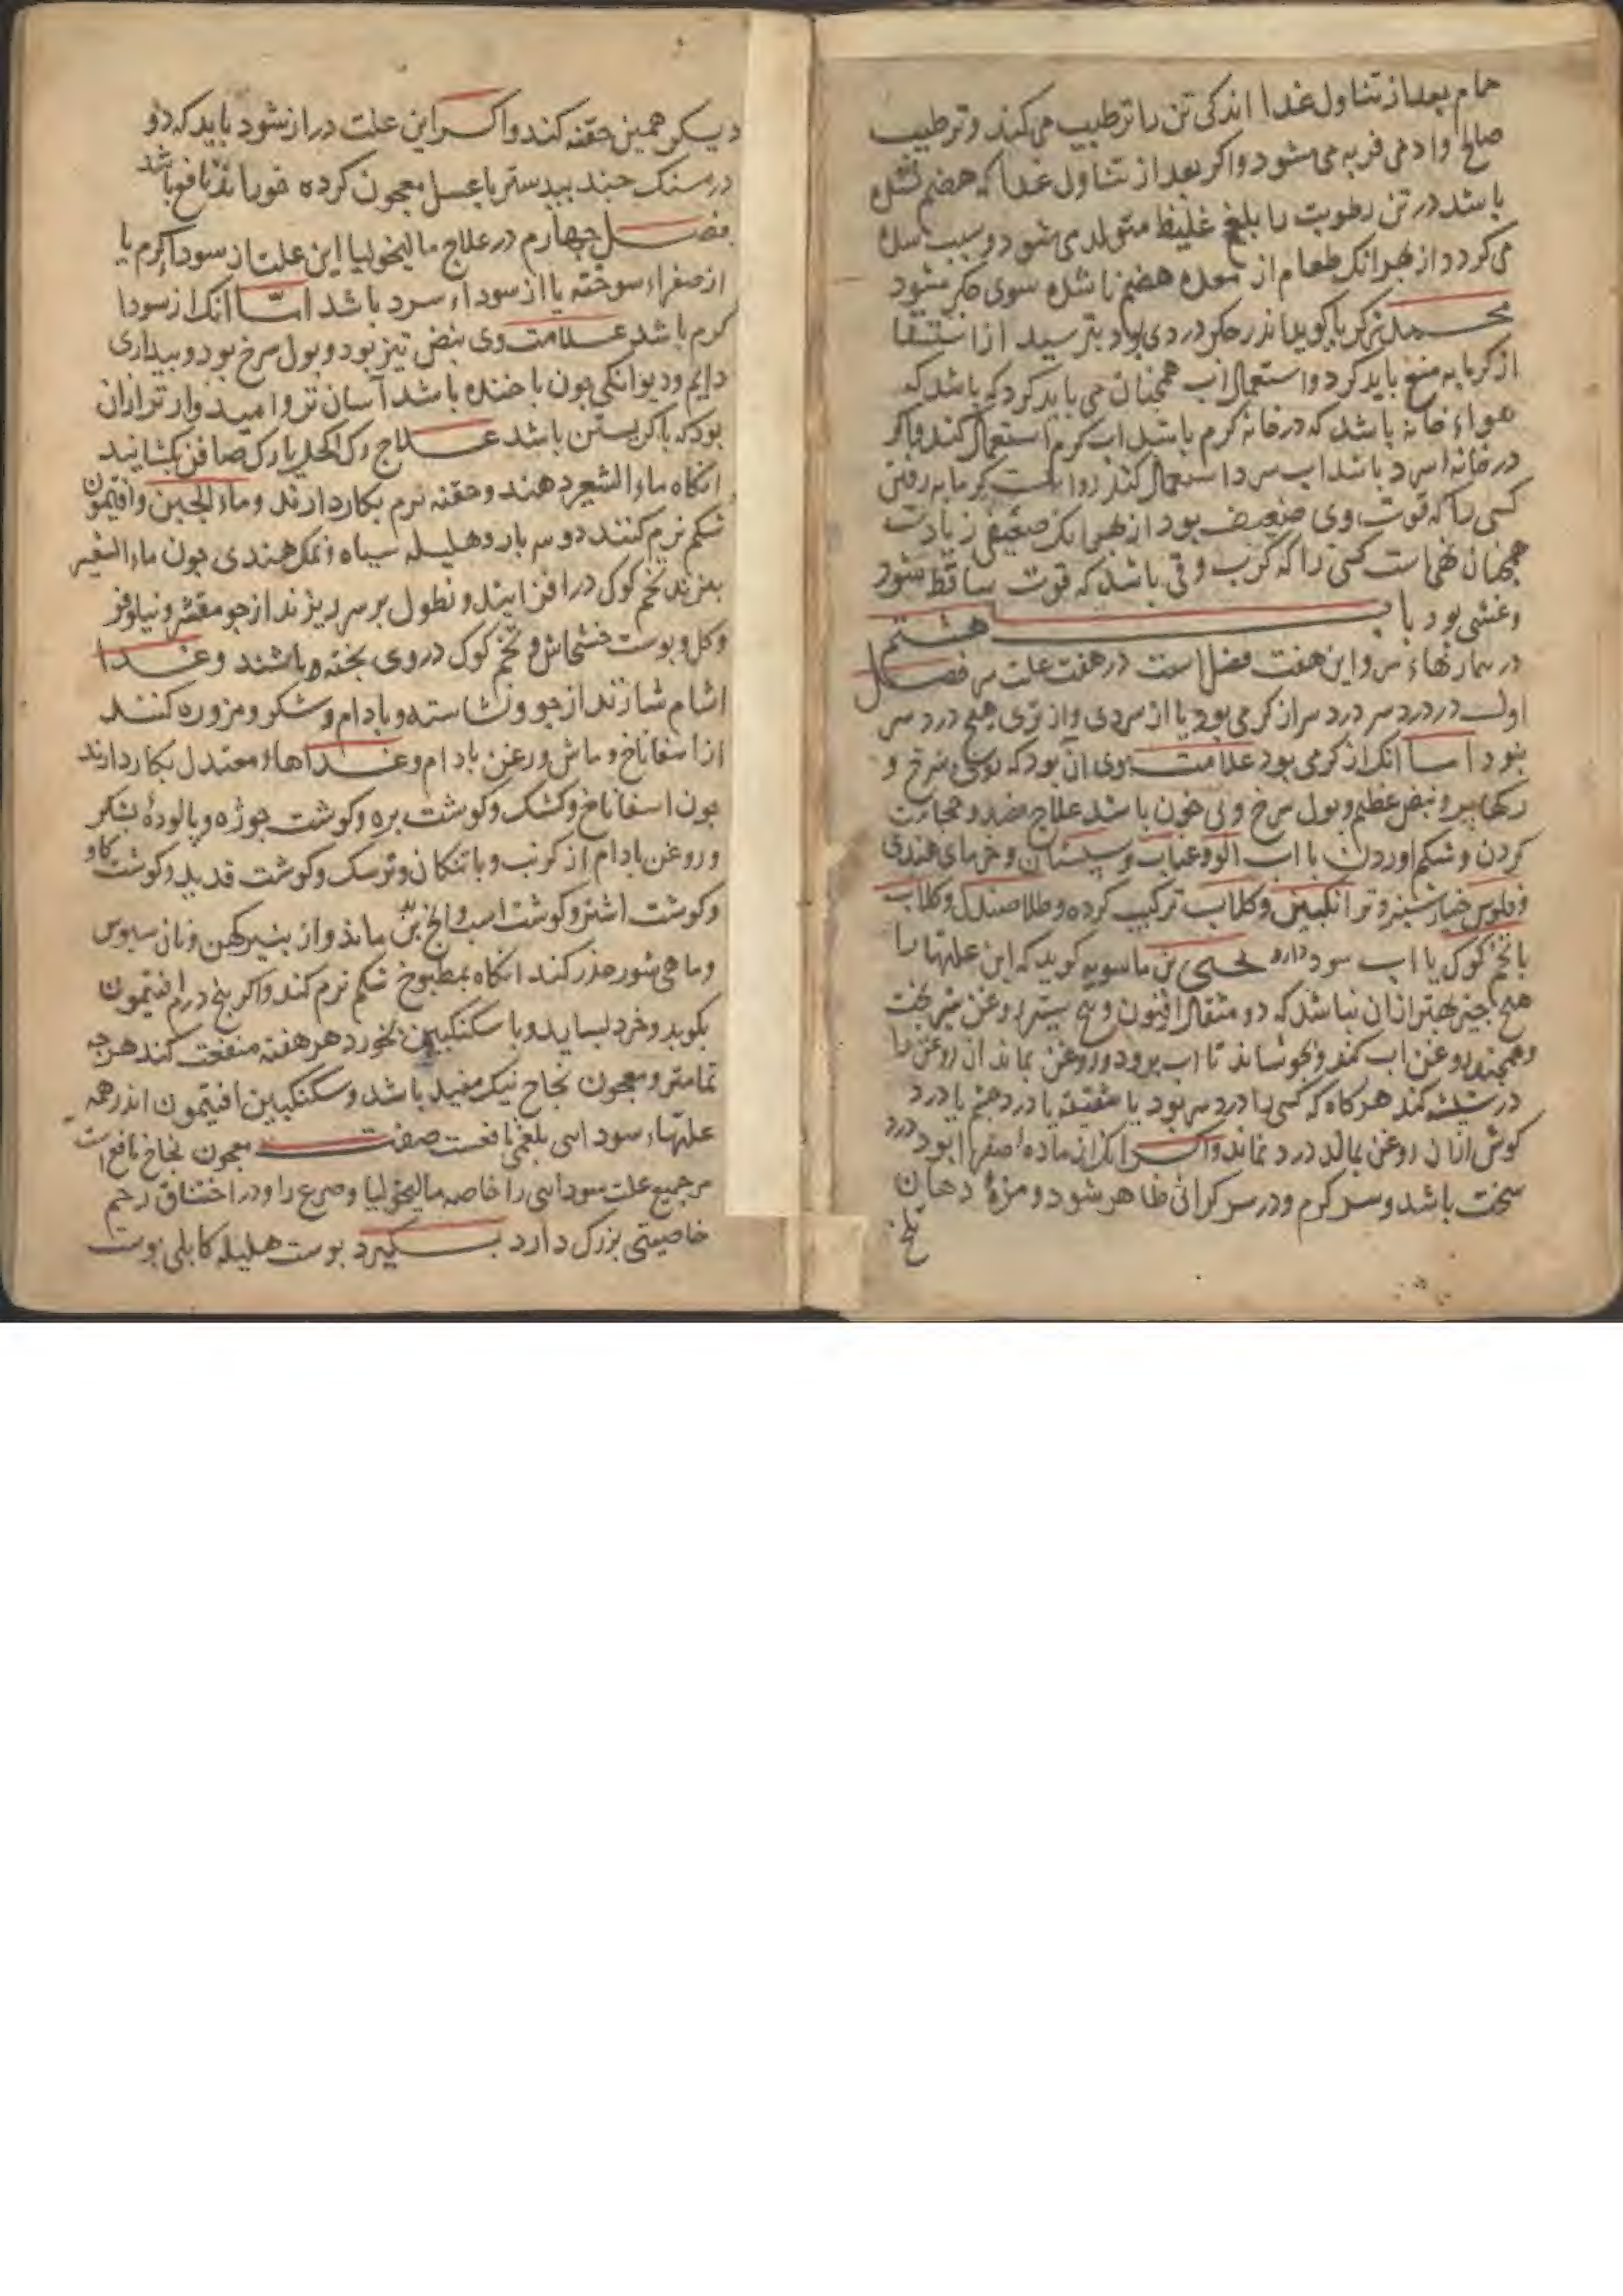 حمام بعد از تناول غدا اندکی تن را ترطیب می کند و ترطیب
صالح وادمی فربه می شود واکر بعد از تناول غدا که هضم نشده
باشد در تن رطوبت را بلغم غلیظ متولد می شود و سبب سده
می کردد از بهر انک طعام از معده هضم نا شده سوی جکر مشود
محمد زکریا کوید اندر جکر دردی بود بترسید از استسقا
از کرمابه منع باید کرد و استعمال اب همجنان می باید کرد که باشد که
هواء خانه باشد که در خانه کرم باشد اب کرم استعمال کند واکر
در خانه سرد باشد اب سرد استعمال کند روا کرمابه رفتن
کسی را که قوت وی ضعیف بود از بهر انک ضعیفی زیادت
همجنان کسی را که کرب وقی باشد که قوت ساقط شود
وغشی بود باب هشتم
در بیماریهاء سر و این هفت فصل است در هفت علت سر فصل
اول در درد سر درد سر از کرمی بود یا از سردی واز تری هیج درد سر
نبود اما انک از کرمی بود علامت وی ان بود که روی سرخ و
رکها پر و نبض عظیم وبول سرخ ونی خون باشد علاج فصد وحجامت
کردن وشکم اوردن با اب الو وعناب وسبستان وخرمای هندی
وفلوس خیار شنبر وترانکبین وکلاب ترکیب کرده وطلا صندل وکلاب
با تخم کوک یا اب سود دارد یحیی بن ماسویه کوید که این علتها را
هیج جیز بهتر از ان نباشد که دو مثقال افیون و روغن
وهمجند روغن اب کند وبجوشاند تا اب برود وروغن بماند ان روغن را
در شیشه کند هر کاه که کسی را درد سر بود یا شقیقه یا درد جشم یا درد
کوش ازان روغن بمالد درد نماند واکر انک از ماده صفرا بود درد
سخت باشد و سر کرم ودر سر کرانی ظاهر شود و مزهٔ دهان
تلخ
دیکر همین حقنه کند واکر این علت دراز شود باید که دو
درمسنک جند بیدستر با عسل معجون کرده خورانند نافع باشد
فصل جهارم در علاج مالیخولیا این علت از سوداء کرم یا
از صفراء سوخته یا از سوداء سرد باشد اما انک از سودا
کرم باشد علامت وی نبض تیز بود وبول سرخ بود وبیداری
دایم ودیوانکی جون با خنده باشد آسان تر وامیدوار تر از ان
بود که با کریستن باشد علاج رک اکحل یا رک صافن بکشایند
انکاه ماء الشعیر دهند وحقنه نرم بکار دارند وماء الجبن وافتیمون
شکم نرم کنند دو سه بار وهلیله سیاه ونمک هندی جون ماء الشعیر
بپزند تخم کوک در افزایند ونطول بر سر ریزند از جو مقشر ونیلوفر
وکل وبوست خشخاش وتخم کوک در وی بخته باشند وغدا
اشام سازند از جو ونشاسته وبادام وشکر ومزوره کنند
از اسفاناخ وماش وروغن بادام وغداهاء معتدل بکار دارند
جون اسفاناخ وکشک وکوشت بره وکوشت جوژه وپالودهٔ بشکر
وروغن بادام از کرنب وباتنکان وکوشت قدید وکوشت کاو
وکوشت اشتر وکوشت اسب وانج بدین ماند واز بنیر کهن ونان سبوس
وماهی شور حذر کند انکاه بمطبوخ شکم نرم کند واکر بنج درم افتیمون
بکوبد وخرد بساید وبا سکنکبین بخورد هر هفته منفعت کند هرجه
تمامتر ومعجون نجاح نیک مفید باشد وسکنکبین افتیمون اندر همه
علتهاء سودایی بلغمی نافعست صفت معجون نجاح نافع است
مر جمیع علت سودایی را خاصه مالیخولیا وصرع را ودر اختناق رحم
خاصیتی بزرک دارد بکیرد بوست هلیله کابلی بوست